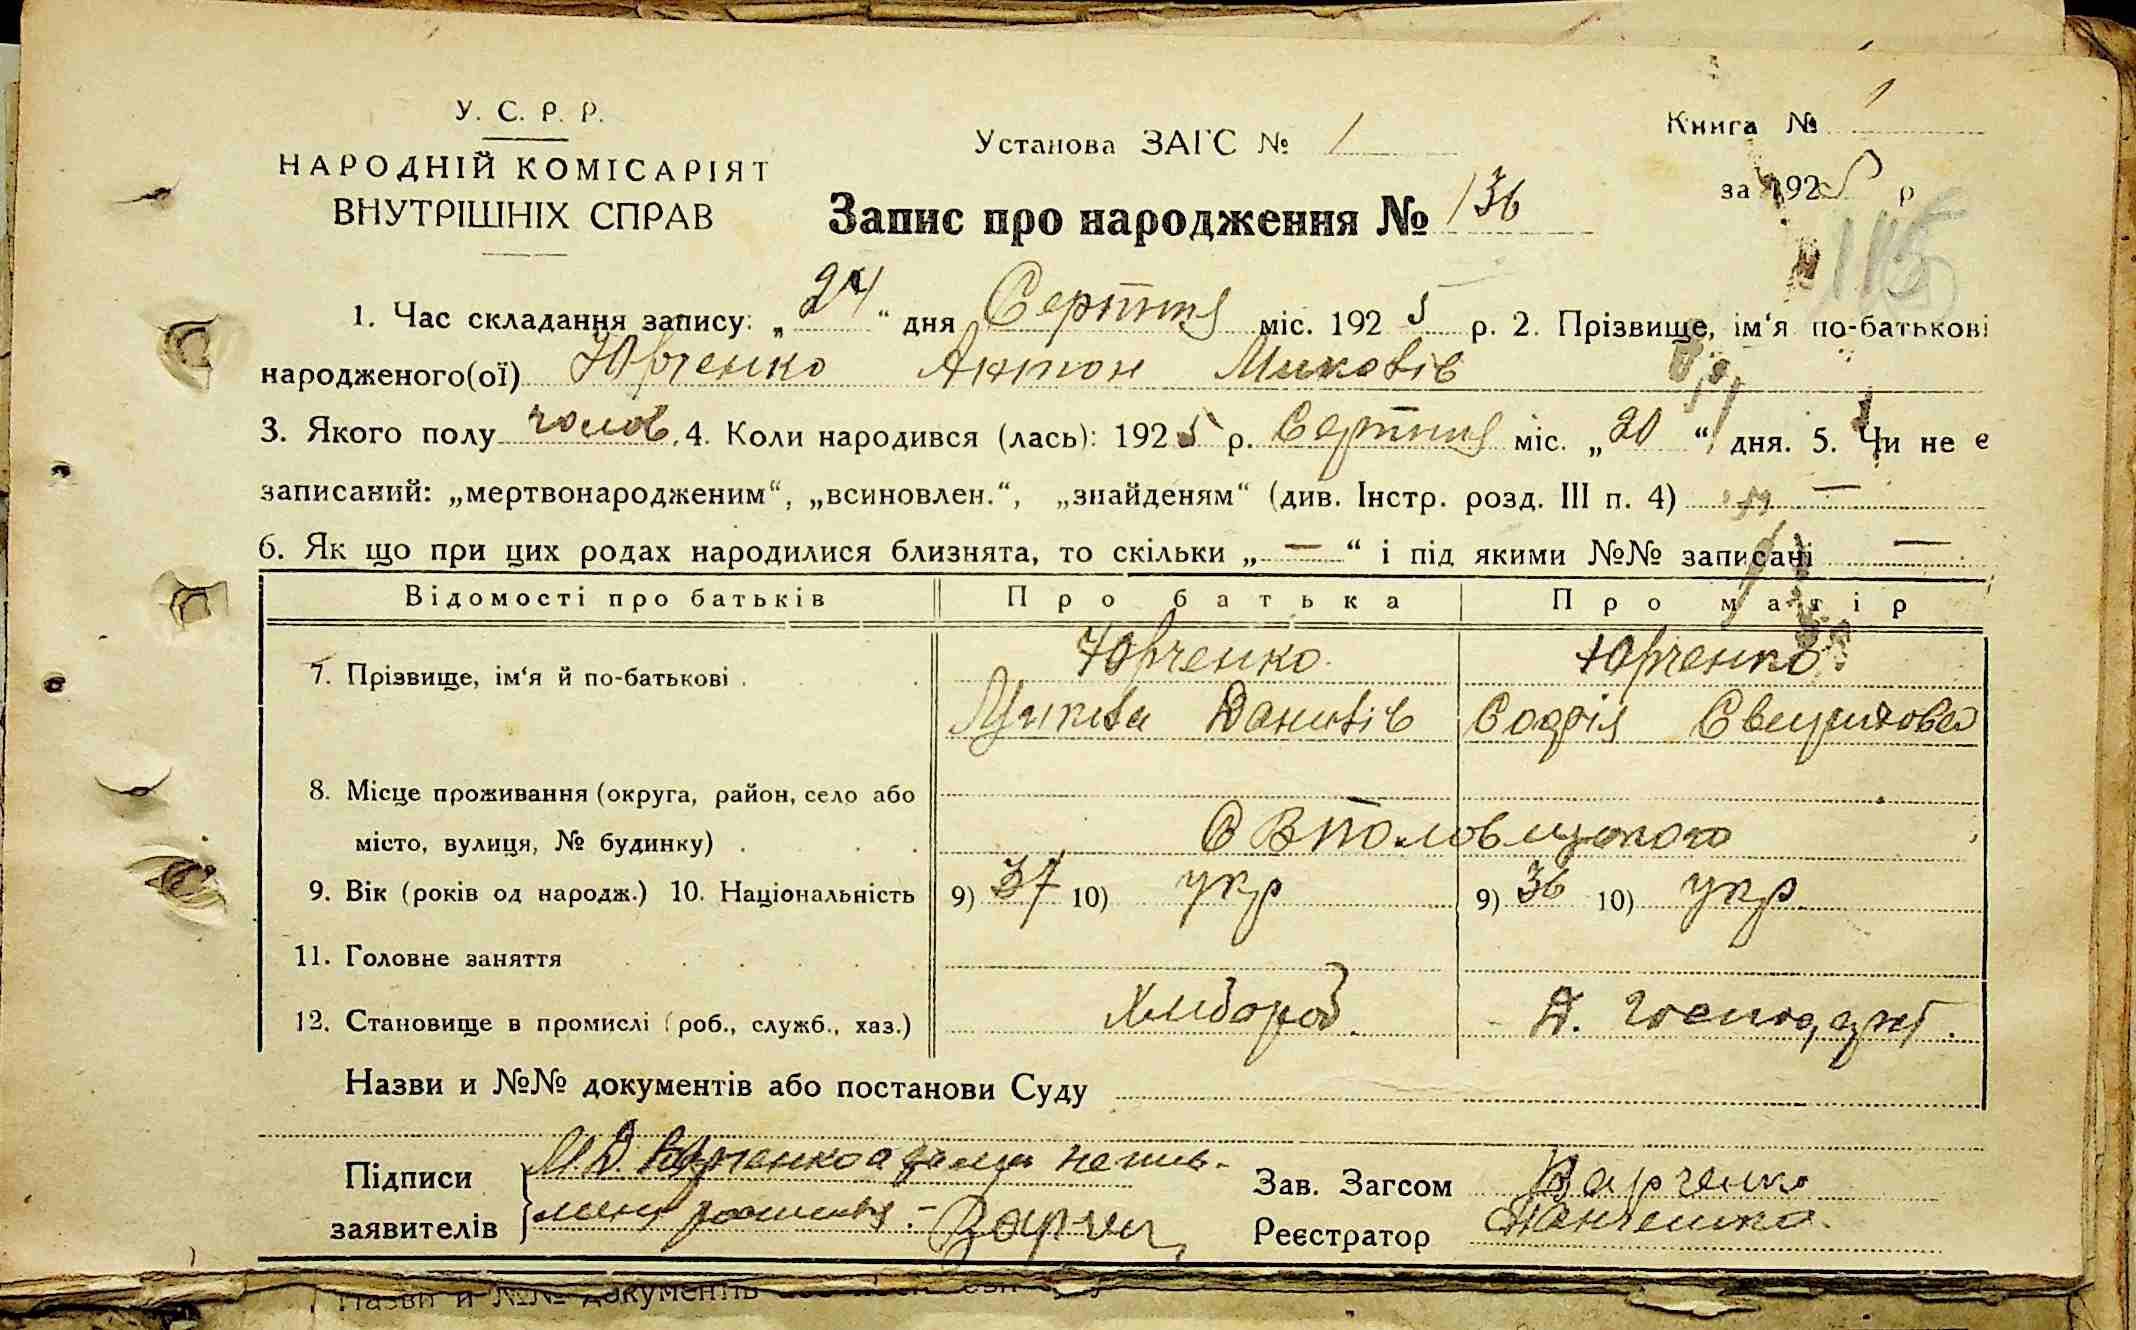 У. С. Р. Р.
НАРОДНІЙ КОМІСАРІЯТ
ВНУТРІШНІХ СПРАВ
Установа ЗАГС № 1
Книга № 1
за 1925 р
Запис про народження № 136
115
1. Час складання запису: „24“ дня Серпня міс. 1925 р. 2. Прізвище, ім‘я по-батькові
народженого(ої) Юрченко Антон Микитів
3. Якого полу чолов. 4. Коли народився (лась): 1925 р. Серпня міс. „20“ дня. 5. Чи не є
записаний: „мертвонародженим“, „всиновлен.“, „знайденям“ (див. Інстр. розд. III п. 4) —
6. Як що при цих родах народилися близнята, то скільки „—“ і під якими №№ записані —
Відомості про батьків Про батька Про матір
7. Прізвище, ім‘я й по-батькові . Юрченко Юрченко
Микита Данилів Софія
8. Місце проживання (округа, район, село або
місто, вулиця, № будинку)
9. Вік (років од народж.) 10. Національність 9) 37 10) укр 9) 36 10) укр.
11. Головне заняття
12. Становище в промислі (роб., служб., хаз.) Хлібороб. Д. господарт.
Назви и №№ документів або постанови Суду
Підписи М. Д. Юрченко а за
заявителів
Зав. Загсом
Реєстратор Панченко
Назви и №№ документів